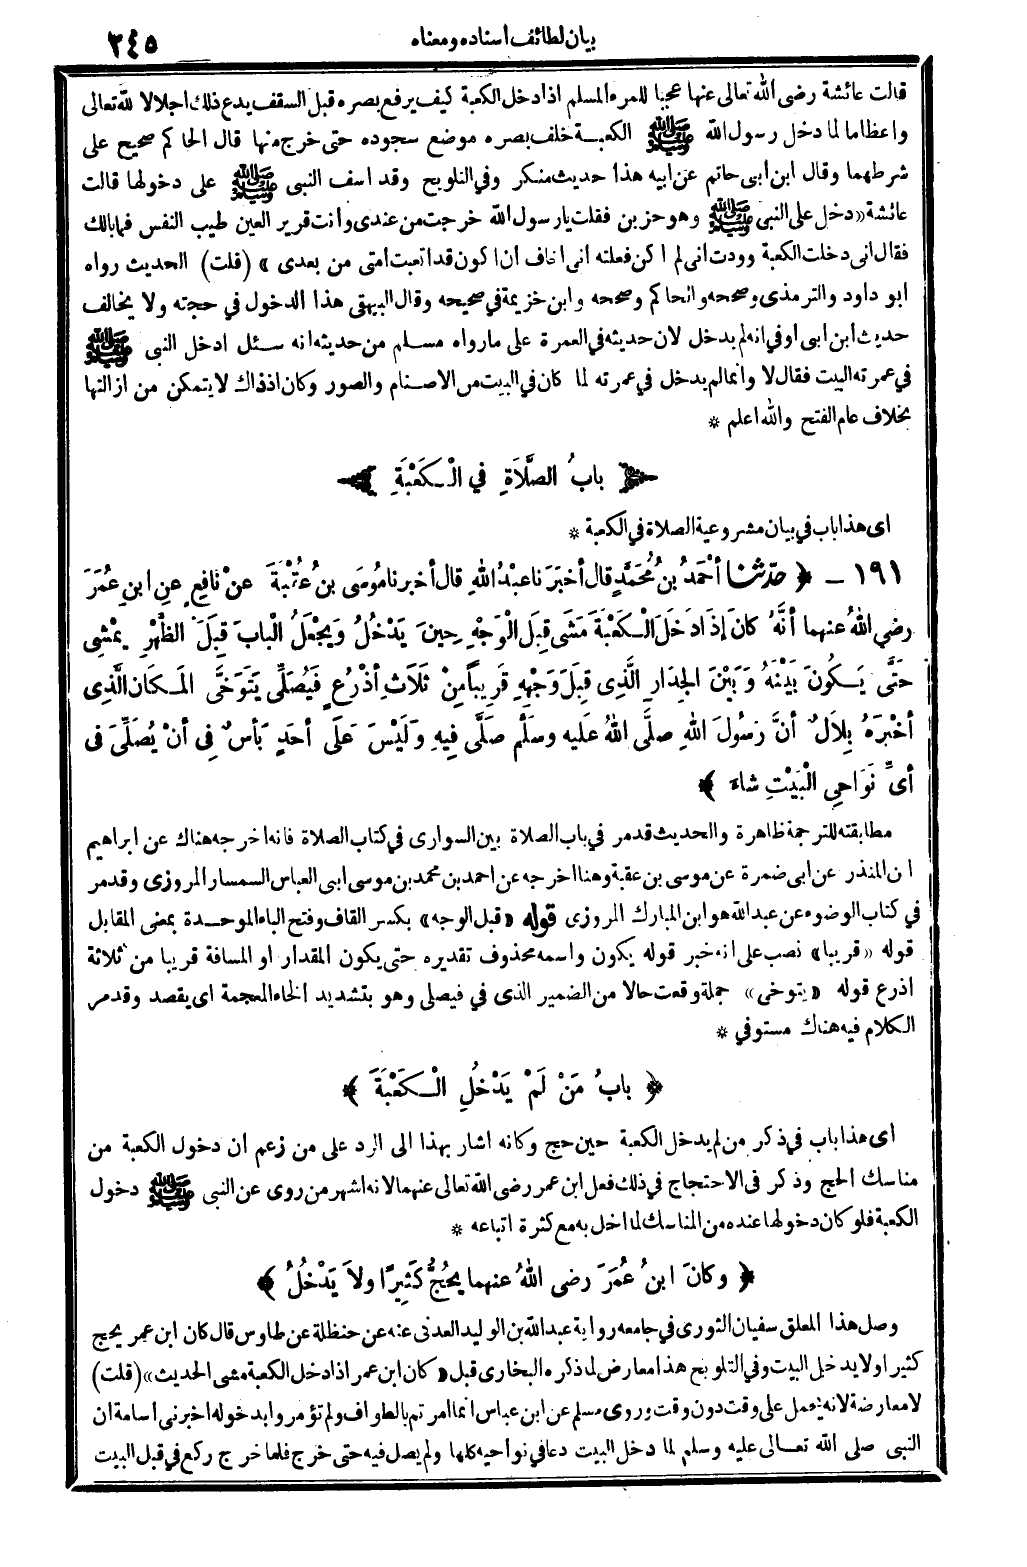 بيان لطائف أسناده ومعناه
٢٤٥
قالت عائشة رضى الله تعالى عنها عجبا للمرء المسلم اذا دخل الكعبة كيف يرفع بصره قبل السقف يدع ذلك اجلالا لله تعالى
واعظاما لما دخل رسول الله ﷺ الكعبة خلف بصره موضع سجوده حتى خرج منها قال الحاكم صحيح على
شرطهما وقال ابن أبى حاتم عن ابيه هذا حديث منكر وفي التلويح وقد اسف النبى ﷺ على دخولها قالت
عائشة «دخل على النبى ﷺ وهو حزين فقلت يارسول الله خرجت من عندى وأنت قرير العين طيب النفس فما بالك
فقال انى دخلت الكعبة وودت انى لم اكن فعلته انى اخاف ان اكون قد اتعبت امتى من بعدى » (قلت) الحديث رواه
ابو داود والترمذى وصححه والحاكم وصححه وابن خزيمة في صحيحه وقال البيهقى هذا الدخول في حجته ولا يخالف
حديث ابن ابى اوفي انه لم يدخل لان حديثه في العمرة على مارواه مسلم من حديثه انه سئل ادخل النبى ﷺ
في عمرته البيت فقال لا وانما لم يدخل في عمرته لما كان في البيت من الاصنام والصور وكان اذ ذاك لا يتمكن من ازالتها
بخلاف عام الفتح والله اعلم *
﴿ بابُ الصَّلَاةِ فِي الْـكَعْبَةِ ﴾
اى هذا باب في بيان مشروعية الصلاة في الكعبة *
١٩١ - ﴿ حدّثنا أحْمَدُ بنُ مُحَمَّدٍ قال أخبَرَنا عبْدُ اللهِ قال أخبرنا مُوسَى بنُ عُتْبَةَ عنْ نافِعٍ عنِ ابنِ عُمَرَ
رضي اللهُ عنهما أنَّهُ كانَ إذَا دَخَلَ الْـكَعْبَةَ مَشَى قِبَلَ الْوَجْهِ حِينَ يَدْخُلُ ويَجْعَلُ الْبابَ قِبَلَ الظَّهْرِ يَمْشِى
حَتَّى يَـكُونَ بَيْنَهُ وَبَيْنَ الجِدَارِ الَّذِى قِبَلَ وَجْهِهِ قَرِيباً مِنْ ثَلَاثِ أذْرُعٍ فَيُصَلِّى يَتَوَخَّى الْمَـكانَ الَّذِى
أخْبَرَهُ بِلَالٌ أنَّ رسُولَ اللهِ صلَّى اللهُ عليه وسلَّم صلَّى فِيهِ وَلَيْسَ عَلَى أحَدٍ بَأْسٌ فِى أنْ يُصَلِّىَ فى
أىِّ نَوَاحِى الْبَيْتِ شاءَ ﴾
مطابقته للترجمة ظاهرة والحديث قد مر في باب الصلاة بين السوارى في كتاب الصلاة فانه اخرجه هناك عن ابراهيم
ان المنذر عن ابى ضمرة عن موسى بن عقبة وهنا اخرجه عن احمد بن محمد بن موسى ابى العباس السمسار المروزى وقد مر
في كتاب الوضوء عن عبد الله هو ابن المبارك المروزى قوله «قبل الوجه» بكسر القاف وفتح الباء الموحدة بمعنى المقابل
قوله «قريبا» نصب على انه خبر قوله يكون واسمه محذوف تقديره حتى يكون المقدار او المسافة قريبا من ثلاثة
اذرع قوله «يتوخى» جملة وقعت حالا من الضمير الذى في فيصلى وهو بتشديد الخاء المعجمة اى يقصد وقد مر
الكلام فيه هناك مستوفي *
﴿ بابُ مَنْ لَمْ يَدْخُلِ الْـكَعْبَةَ ﴾
اى هذا باب في ذكر من لم يدخل الكعبة حين حج وكانه اشار بهذا الى الرد على من زعم ان دخول الكعبة من
مناسك الحج وذكر فى الاحتجاج في ذلك فعل ابن عمر رضى الله تعالى عنهما لانه اشهر من روى عن النبى ﷺ دخول
الكعبة فلو كان دخولها عنده من المناسك لما اخل به مع كثرة اتباعه *
﴿ وكانَ ابنُ عُمَرَ رضى اللهُ عنهما يَحُجُّ كَثِيرًا ولاَ يَدْخُلُ ﴾
وصل هذا المعلق سفيان الثورى في جامعه رواية عبد الله بن الوليد العدنى عنه عن حنظلة عن طاوس قال كان ابن عمر يحج
كثيرا ولا يدخل البيت وفي التلويح هذا معارض لما ذكره البخارى قبل «كان ابن عمر اذا دخل الكعبة مشى الحديث» (قلت)
لا معارضة لانه يحمل على وقت دون وقت وروى مسلم عن ابن عباس انما امرتم بالطواف ولم تؤمروا بدخوله اخبرنى أسامة ان
النبى صلى الله تعالى عليه وسلم لما دخل البيت دعا في نواحيه كلها ولم يصل فيه حتى خرج فلما خرج ركع في قبل البيت